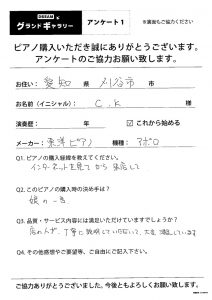 グランドギャラリー アンケート1 ※裏面もご協力ください
ピアノ購入いただき誠にありがとうございます。
アンケートのご協力お願い致します。
お住い： 愛知 県 刈谷市
お名前（イニシャル）： C.K 様
演奏歴： 年 ☑ これから始める
メーカー： 東洋ピアノ 機種： アポロ
Q1. ピアノの購入経緯を教えてください。
インターネットを見てから来店して
Q2. このピアノの購入時の決め手は？
娘の一音
Q3. 品質・サービス内容には満足いただけていますでしょうか？
店の人が、丁寧に説明していただいて、大変満足しています
Q4. その他感想やご要望等、ご自由にご記入下さい。
ご協力ありがとうございました。今後ともよろしくお願い致します。